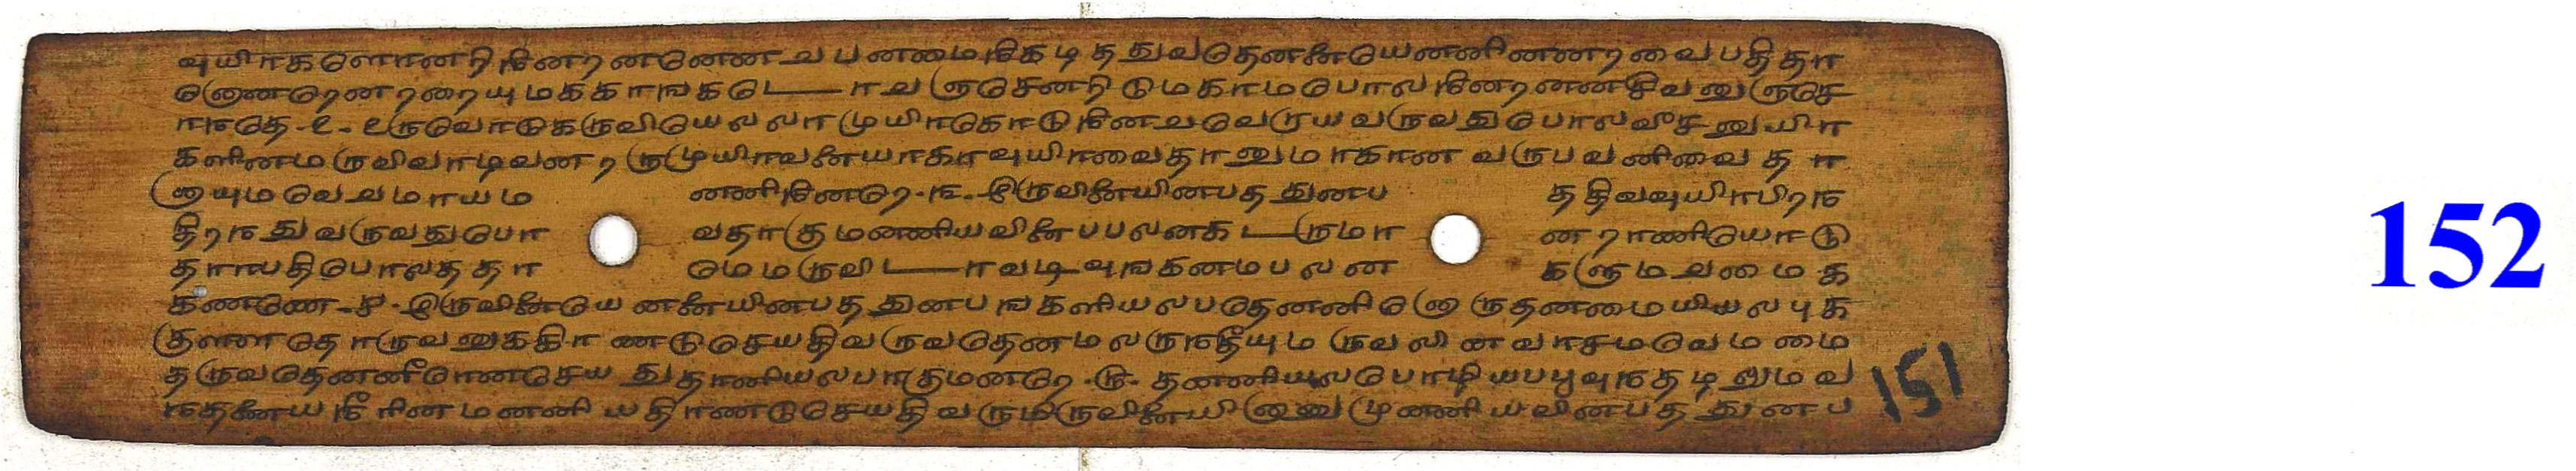 வுயிாகளொனறிநினறனனெண வபனமைநிகடி தததுவதெனனேயெனனினணறவைபதிதா
னெணறெனறறையுமககாஙகடொவருசெனறிடுமகாமபொலநினறணைசிவனுருசெ
ாநதெ-௨-உருவொடுகருவியெலலாமுயிாகொடுநினவவெருயவருவதுபொலவீசனுயிா
களினமருவிவாடிவனறருமுயிாவனேயாகாவுயிாவைதானுமாகானவருபவனிவைதா
னுயுமவெவமாயம னணிநினறெ-௩-இருவினையினபததுனப ததிவவுயிாபிறந
திறநதுவருவதுபொ வதாகுமணணியவினேபபலனகடருமா னறாணியொடு
தாாலபதிபொலததா மெமருவிடாவடிவுஙகனமபலன களுமவமைக
கணணெ-௪-இருவினையெனனேயினபததுனபஙகளியலபதெனணினெருதனமையியலபுக
குளளதொருவனுககிாணடுசெயதிவருவதெனமலருநதீயுமருவலினவாசமவெமமை
தருவதெனனீாணசெயதுதானியலபாகுமனறெ-௫-தணணியலபொழியபபூவுநதடிலுமவ
நதனேயநீாினமணணியதிாணடுசெயதிவருமிருவினேயினுனுமுணணியவினபததுனப
151
152